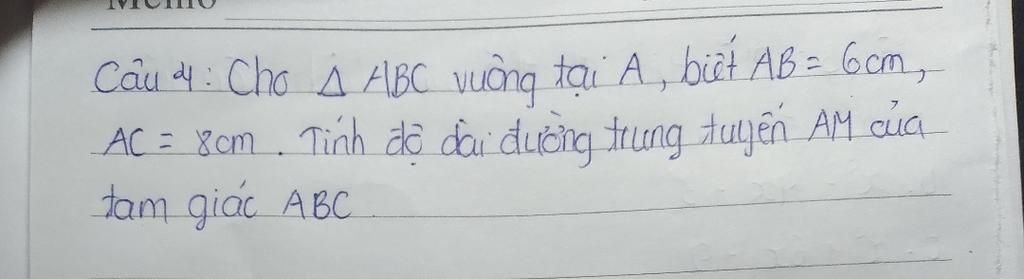 Memo
Câu 4: Cho Δ ABC vuông tại A, biết AB = 6cm,
AC = 8cm. Tính độ dài đường trung tuyến AM của
tam giác ABC